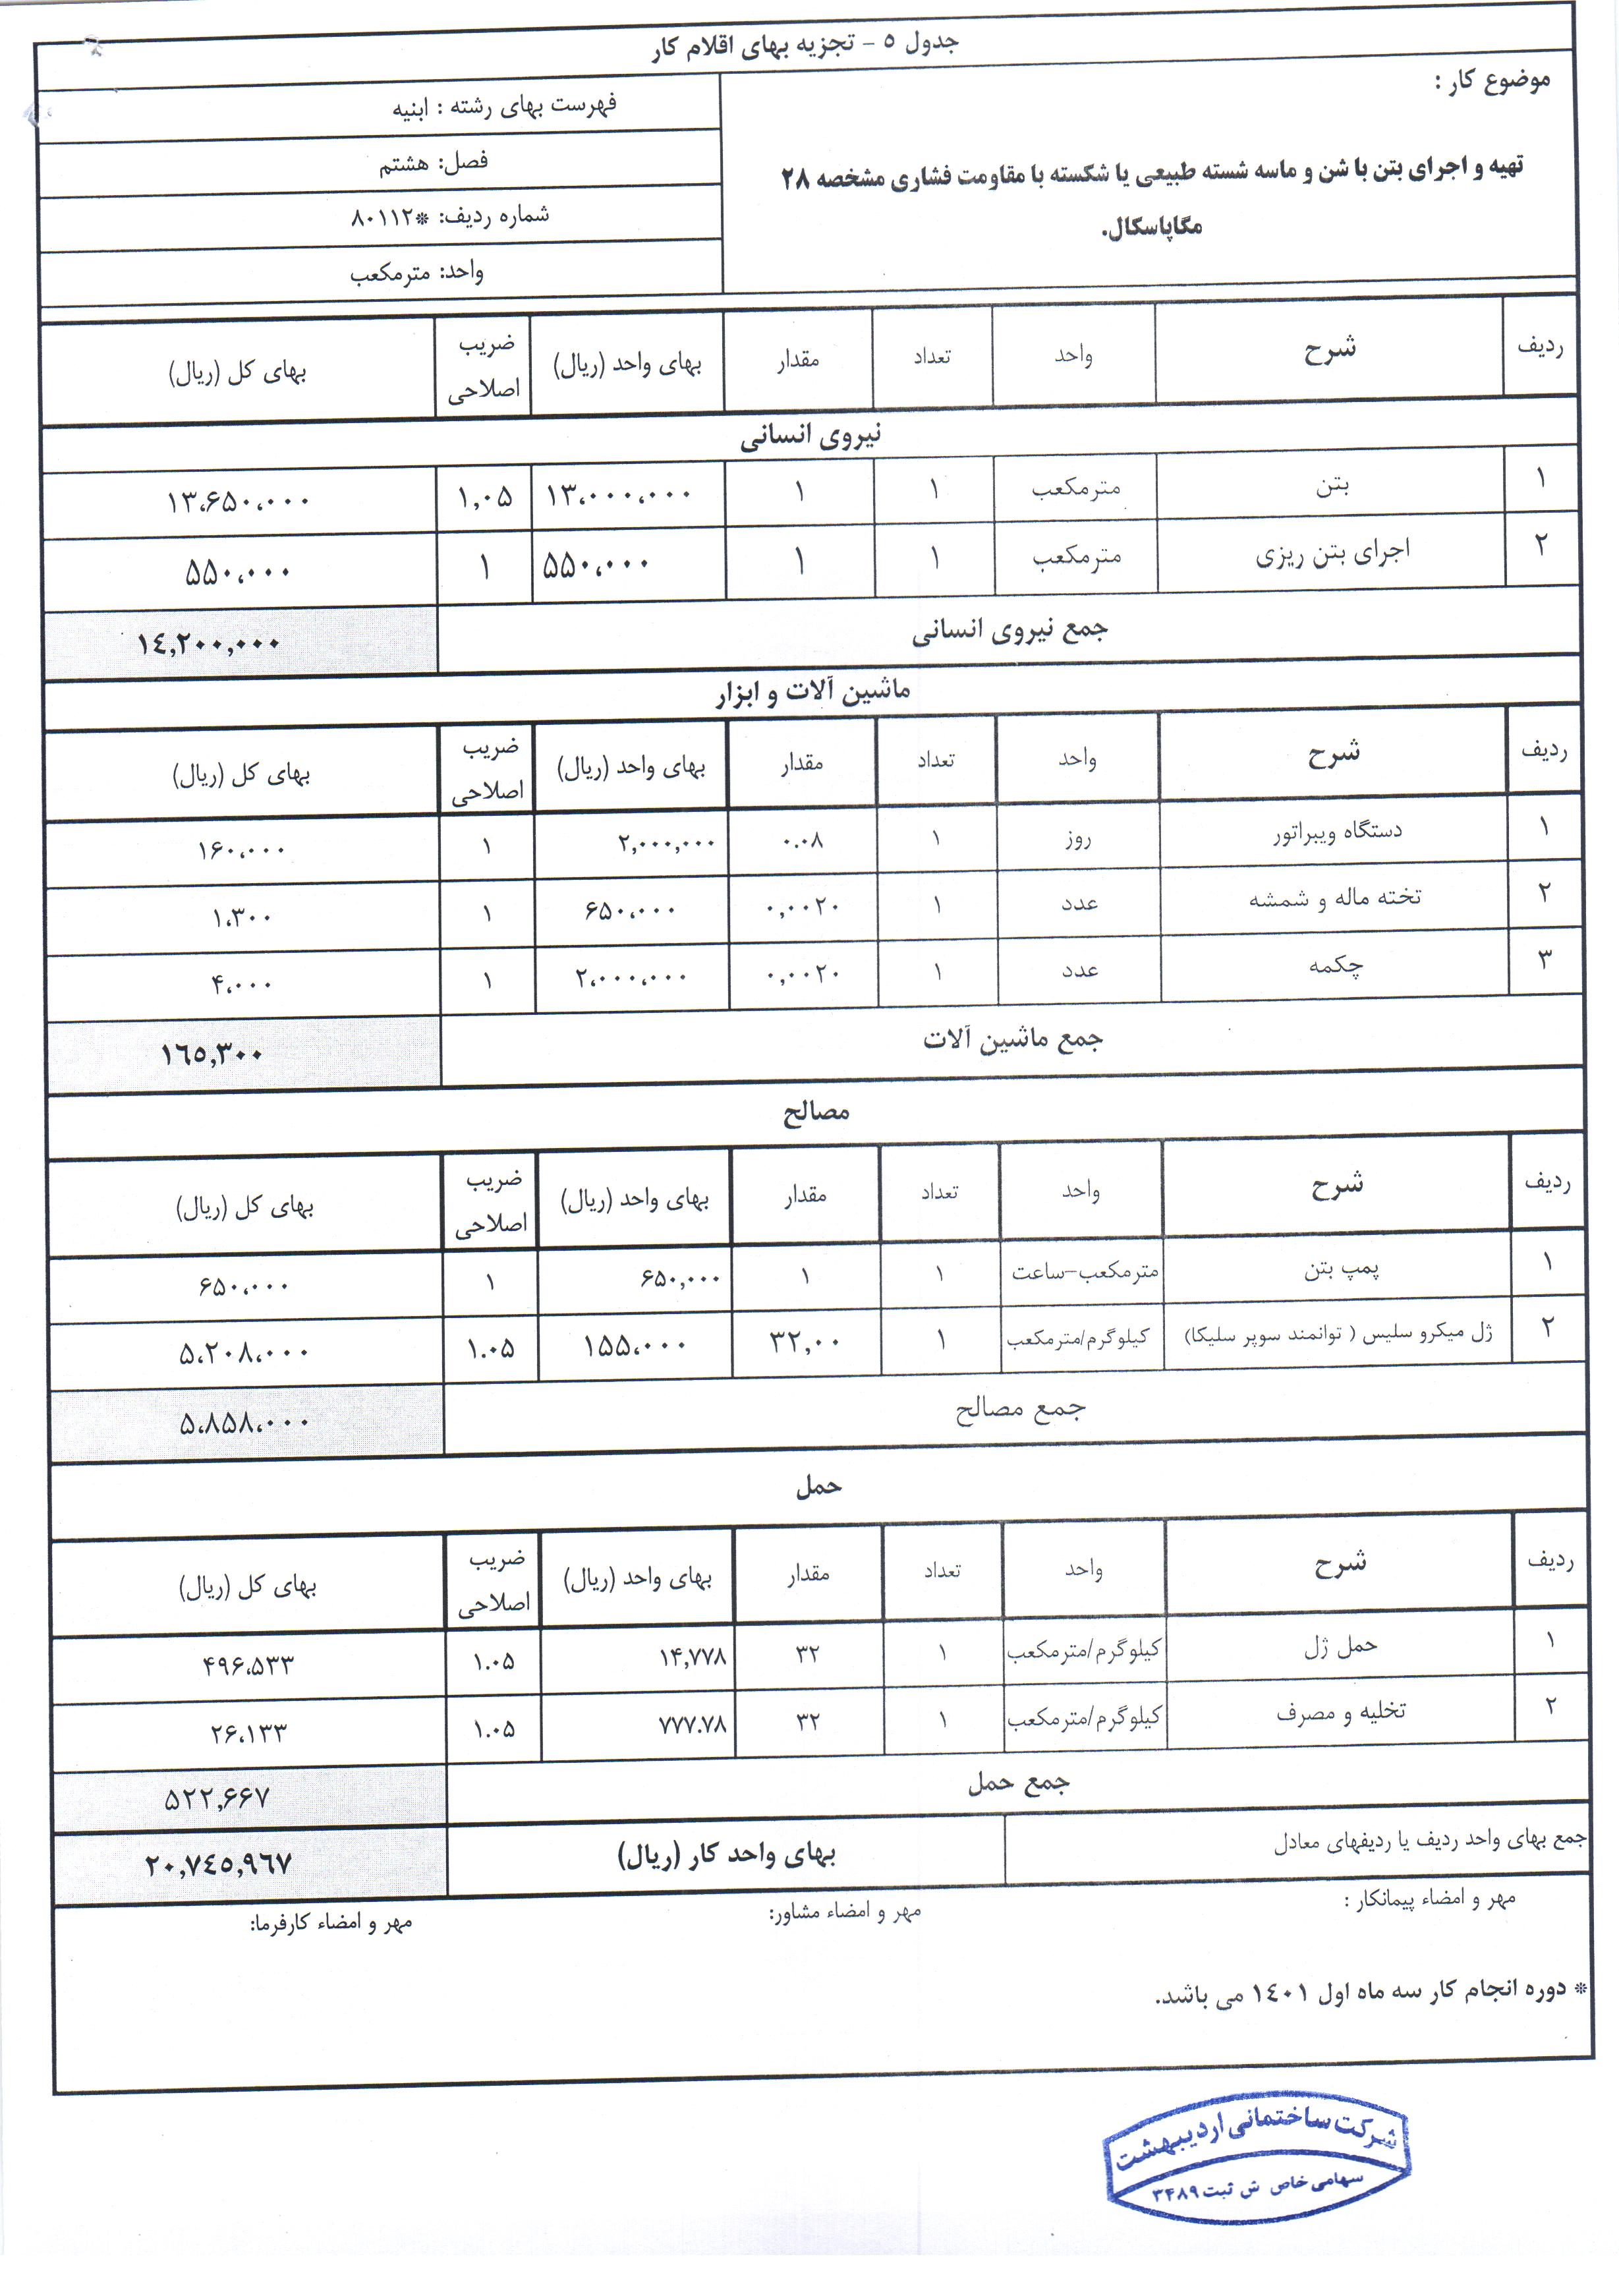 جدول ۵ - تجزیه بهای اقلام کار
موضوع کار :
تهیه و اجرای بتن با شن و ماسه شسته طبیعی یا شکسته با مقاومت فشاری مشخصه ۲۸
مگاپاسکال.
فهرست بهای رشته : ابنیه
فصل: هشتم
شماره ردیف: *۸۰۱۱۲
واحد: مترمکعب
ردیف شرح واحد تعداد مقدار بهای واحد (ریال) ضریب اصلاحی بهای کل (ریال)
نیروی انسانی
۱ بتن مترمکعب ۱ ۱ ۱۳،۰۰۰،۰۰۰ ۱,۰۵ ۱۳،۶۵۰،۰۰۰
۲ اجرای بتن ریزی مترمکعب ۱ ۱ ۵۵۰،۰۰۰ ۱ ۵۵۰،۰۰۰
جمع نیروی انسانی ١٤,٢٠٠,٠٠٠
ماشین آلات و ابزار
ردیف شرح واحد تعداد مقدار بهای واحد (ریال) ضریب اصلاحی بهای کل (ریال)
۱ دستگاه ویبراتور روز ۱ ۰.۰۸ ۲,۰۰۰,۰۰۰ ۱ ۱۶۰،۰۰۰
۲ تخته ماله و شمشه عدد ۱ ۰,۰۰۲۰ ۶۵۰،۰۰۰ ۱ ۱،۳۰۰
۳ چکمه عدد ۱ ۰,۰۰۲۰ ۲،۰۰۰،۰۰۰ ۱ ۴،۰۰۰
جمع ماشین آلات ١٦٥,٣٠٠
مصالح
ردیف شرح واحد تعداد مقدار بهای واحد (ریال) ضریب اصلاحی بهای کل (ریال)
۱ پمپ بتن مترمکعب-ساعت ۱ ۱ ۶۵۰,۰۰۰ ۱ ۶۵۰،۰۰۰
۲ ژل میکرو سلیس ( توانمند سوپر سلیکا) کیلوگرم/مترمکعب ۱ ۳۲,۰۰ ۱۵۵،۰۰۰ ۱.۰۵ ۵،۲۰۸،۰۰۰
جمع مصالح ۵،۸۵۸،۰۰۰
حمل
ردیف شرح واحد تعداد مقدار بهای واحد (ریال) ضریب اصلاحی بهای کل (ریال)
۱ حمل ژل کیلوگرم/مترمکعب ۱ ۳۲ ۱۴,۷۷۸ ۱.۰۵ ۴۹۶،۵۳۳
۲ تخلیه و مصرف کیلوگرم/مترمکعب ۱ ۳۲ ۷۷۷.۷۸ ۱.۰۵ ۲۶،۱۳۳
جمع حمل ۵۲۲,۶۶۷
جمع بهای واحد ردیف یا ردیفهای معادل بهای واحد کار (ریال) ٢٠,٧٤٥,٩٦٧
مهر و امضاء پیمانکار : مهر و امضاء مشاور: مهر و امضاء کارفرما:
* دوره انجام کار سه ماه اول ١٤٠١ می باشد.
شرکت ساختمانی اردیبهشت
سهامی خاص ش ثبت ۳۴۸۹